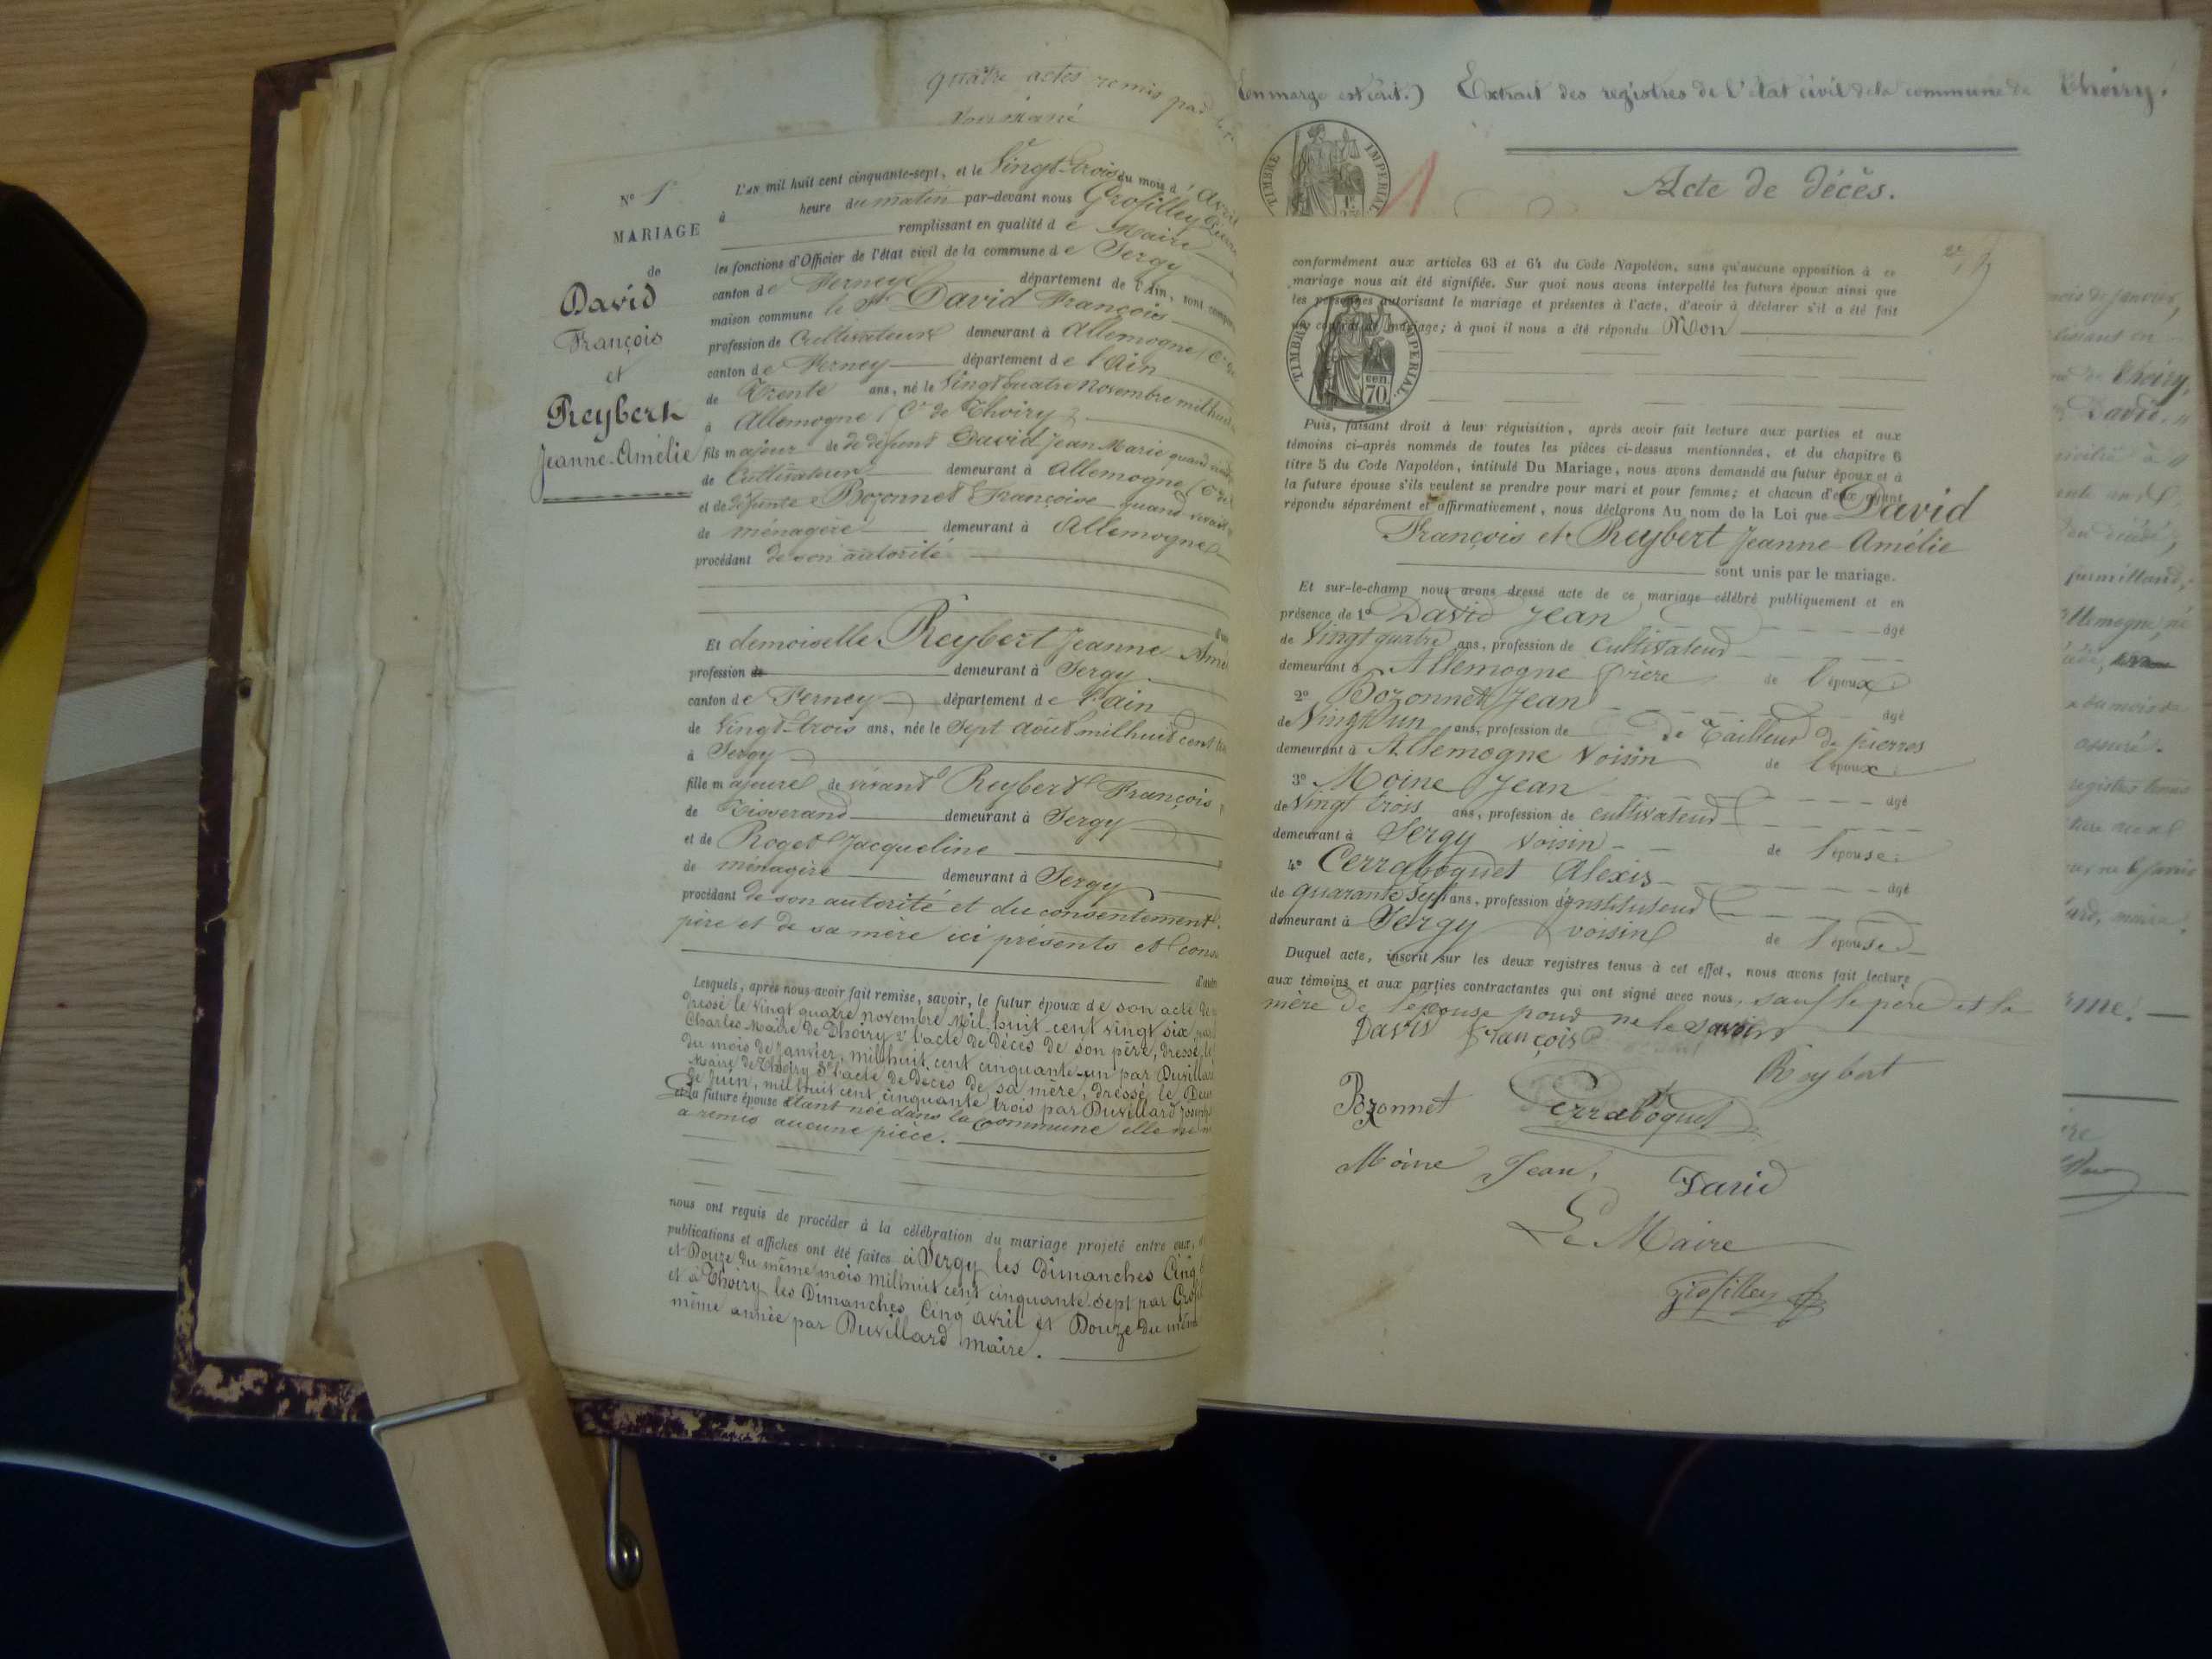 quatre actes remis par
N° 1er
MARIAGE
de
David
François
et
Reybert
Jeanne-Amélie
L'AN mil huit cent cinquante-sept, et le Vingt-trois du mois d'Avril
à heure du matin par-devant nous Grosfilley
remplissant en qualité de Maire
les fonctions d'Officier de l'état civil de la commune de Sergy
canton de Ferney département de l'Ain, sont
maison commune le Sr David François
profession de Cultivateur demeurant à Allemogne (Cne de
canton de Ferney département de l'ain
de Trente ans, né le Vingt quatre Novembre mil huit
à Allemogne (Cne de Thoiry)
fils majeur de défunt David Jean Marie quand
de Cultivateur demeurant à Allemogne
et de défunte Bozonnet Françoise quand vivait
de ménagère demeurant à Allemogne
procédant de son autorité
Et demoiselle Reybert Jeanne
profession de demeurant à Sergy
canton de Ferney département de l'ain
de Vingt-trois ans, née le Sept août mil huit cent
à Sergy
fille majeure de vivant Reybert François
de Tisserand demeurant à Sergy
et de Roget Jacqueline
de ménagère demeurant à Sergy
procédant de son autorité et du consentement
père et de sa mère ici présents et
Lesquels, après nous avoir fait remise, savoir, le futur époux de son acte de
dressé le vingt quatre novembre Mil-huit-cent vingt six
Charles Maire de Thoiry 2° l'acte de Décès de son père, dressé le
du mois de Janvier, mil huit cent cinquante-un par Duvillard
Maire de Thoiry 3° l'acte de Décès de sa mère, dressé le
de Juin, mil huit cent cinquante trois par Duvillard
et la future épouse étant née dans la Commune elle ne
a remis aucune pièce.
nous ont requis de procéder à la célébration du mariage projeté entre eux,
publications et affiches ont été faites à Sergy les Dimanches Cinq
et Douze du même mois mil huit cent cinquante-sept par
et à Thoiry les Dimanches Cinq avril et Douze du même
même année par Duvillard maire.
(en marge est écrit.) Extrait des registres de l'état civil de la commune de Thoiry.
TIMBRE IMPERIAL
Acte de décès.
conformément aux articles 63 et 64 du Code Napoléon, sans qu'aucune opposition à ce
mariage nous ait été signifiée. Sur quoi nous avons interpellé les futurs époux ainsi que
les personnes autorisant le mariage et présentes à l'acte, d'avoir à déclarer s'il a été fait
un contrat de mariage; à quoi il nous a été répondu Non
TIMBRE IMPERIAL
cen.
70.
Puis, faisant droit à leur réquisition, après avoir fait lecture aux parties et aux
témoins ci-après nommés de toutes les pièces ci-dessus mentionnées, et du chapitre 6
titre 5 du Code Napoléon, intitulé Du Mariage, nous avons demandé au futur époux et à
la future épouse s'ils veulent se prendre pour mari et pour femme; et chacun d'eux ayant
répondu séparément et affirmativement, nous déclarons Au nom de la Loi que David
François et Reybert Jeanne-Amélie
sont unis par le mariage.
Et sur-le-champ nous avons dressé acte de ce mariage célébré publiquement et en
présence de 1° David Jean âgé
de Vingt quatre ans, profession de cultivateur
demeurant à Allemogne frère de l'époux
2° Bozonnet Jean âgé
de Vingt un ans, profession de de Tailleur de pierres
demeurant à Allemogne Voisin de l'époux
3° Moine Jean âgé
de Vingt trois ans, profession de cultivateur
demeurant à Sergy voisin de l'épouse
4° Cerraboquet Alexis âgé
de quarante Sept ans, profession d'instituteur
demeurant à Sergy voisin de l'épouse
Duquel acte, inscrit sur les deux registres tenus à cet effet, nous avons fait lecture
aux témoins et aux parties contractantes qui ont signé avec nous, sauf le père et la
mère de l'épouse pour ne le savoir
David François
Reybert
Bozonnet Cerraboquet
Moine Jean, David
Le Maire
Grosfilley